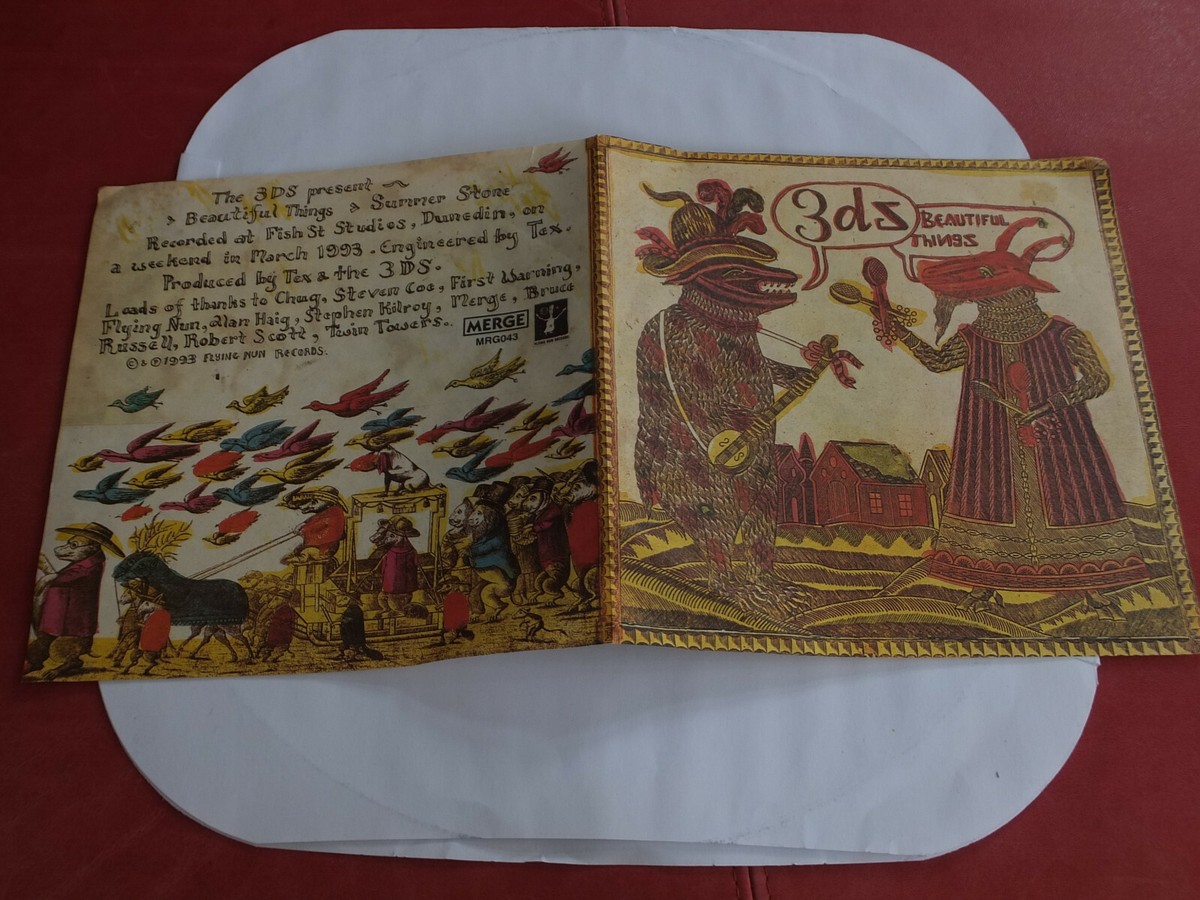 The 3DS present ~
Beautiful Things & Summer Stone
Recorded at Fish St Studios, Dunedin, on
a weekend in March 1993. Engineered by Tex.
Produced by Tex & the 3DS.
Loads of thanks to Chug, Steven Coe, First Warning,
Flying Nun, Alan Haig, Stephen Kilroy, Merge, Bruce
Russell, Robert Scott, Twin Towers..
© & ℗ 1993 FLYING NUN RECORDS.
MERGE
MRG043
3ds
BEAUTIFUL
THINGS